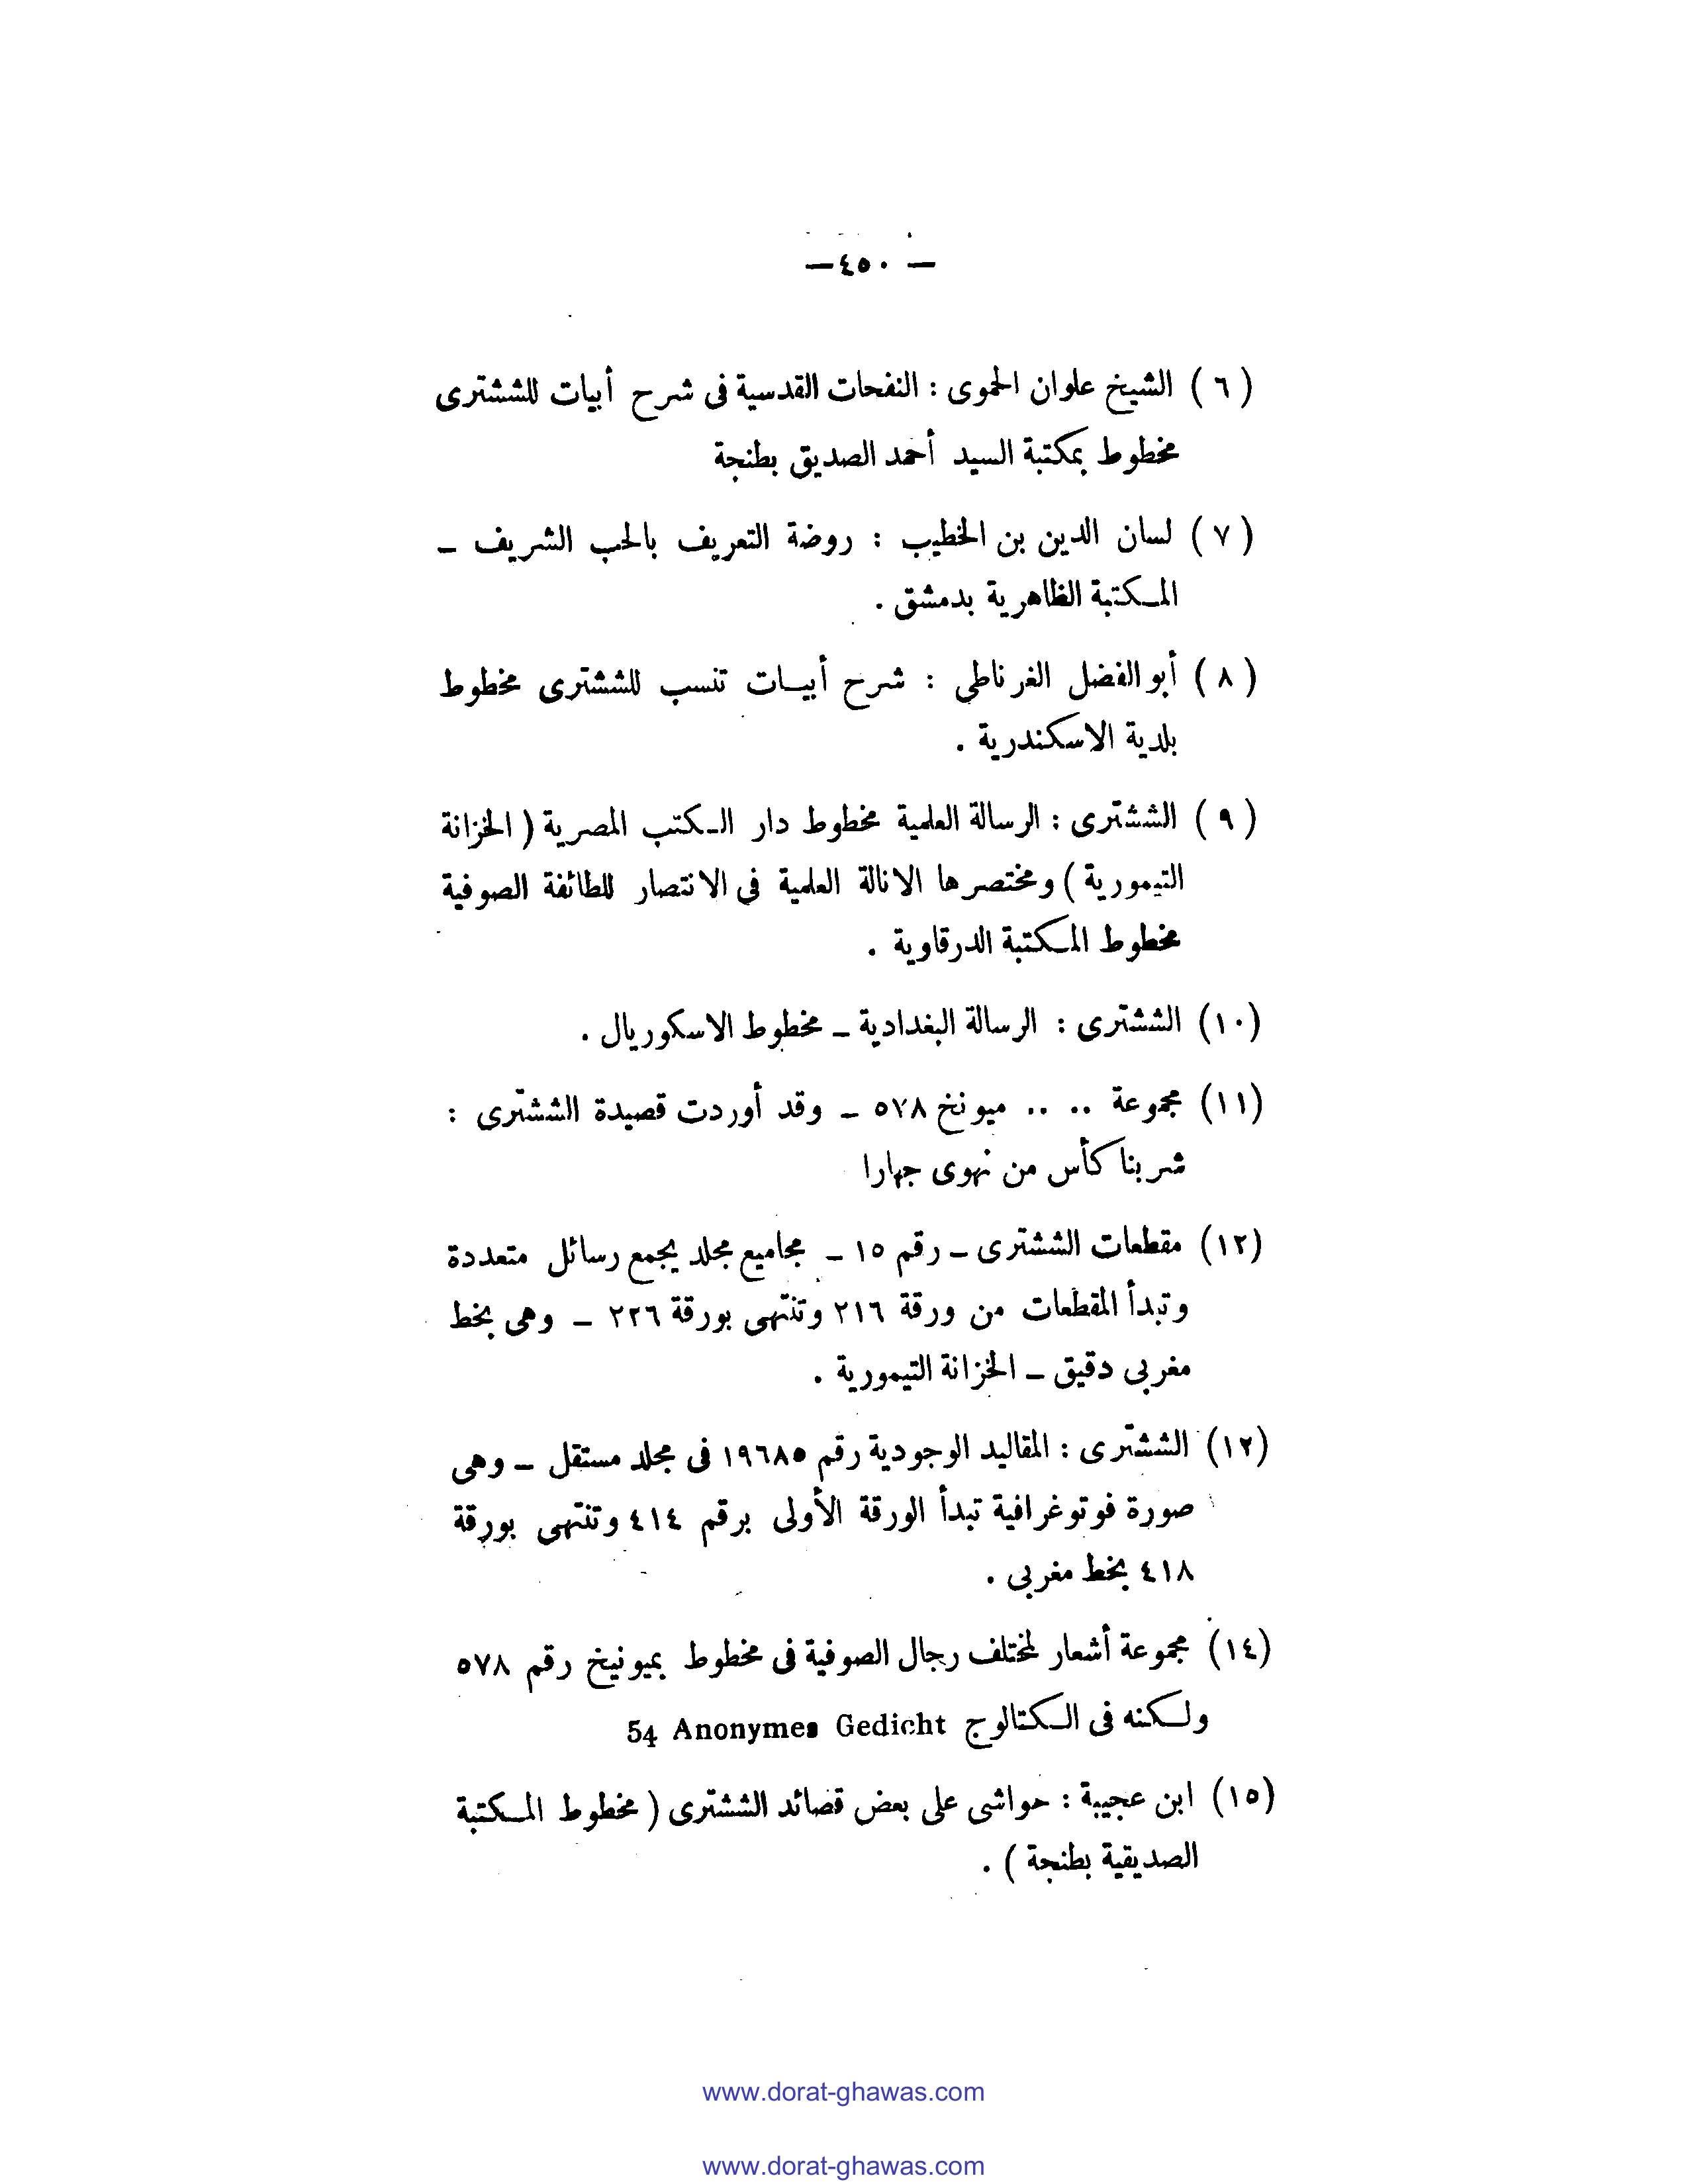 — ٤٥٠ —
( ٦ ) الشيخ علوان الحموى : النفحات القدسية فى شرح أبيات للششترى
مخطوط بمكتبة السيد أحمد الصديق بطنجة
( ٧ ) لسان الدين بن الخطيب : روضة التعريف بالحب الشريف –
المكتبة الظاهرية بدمشق .
( ٨ ) أبو الفضل الغرناطى : شرح أبيات تنسب للششترى مخطوط
بلدية الاسكندرية .
( ٩ ) الششترى : الرسالة العلمية مخطوط دار الكتب المصرية ( الخزانة
التيمورية ) ومختصرها الانالة العلمية فى الانتصار للطائفة الصوفية
مخطوط المكتبة الدرقاوية .
(١٠) الششترى : الرسالة البغدادية – مخطوط الاسكوريال .
(١١) مجموعة .. .. ميونخ ٥٧٨ – وقد أوردت قصيدة الششترى :
شربنا كأس من نهوى جهارا
(١٢) مقطعات الششترى – رقم ١٥ – مجاميع مجلد يجمع رسائل متعددة
وتبدأ المقطعات من ورقة ٢١٦ وتنتهى بورقة ٢٢٦ – وهى بخط
مغربى دقيق – الخزانة التيمورية .
(١٢) الششترى : المقاليد الوجودية رقم ١٩٦٨٥ فى مجلد مستقل – وهى
صورة فوتوغرافية تبدأ الورقة الأولى برقم ٤١٤ وتنتهى بورقة
٤١٨ بخط مغربى .
(١٤) مجموعة أشعار لمختلف رجال الصوفية فى مخطوط بميونيخ رقم ٥٧٨
ولكنه فى الكتالوج 54 Anonymes Gedicht
(١٥) ابن عجيبة : حواشى على بعض قصائد الششترى ( مخطوط المكتبة
الصديقية بطنجة ) .
www.dorat-ghawas.com
www.dorat-ghawas.com